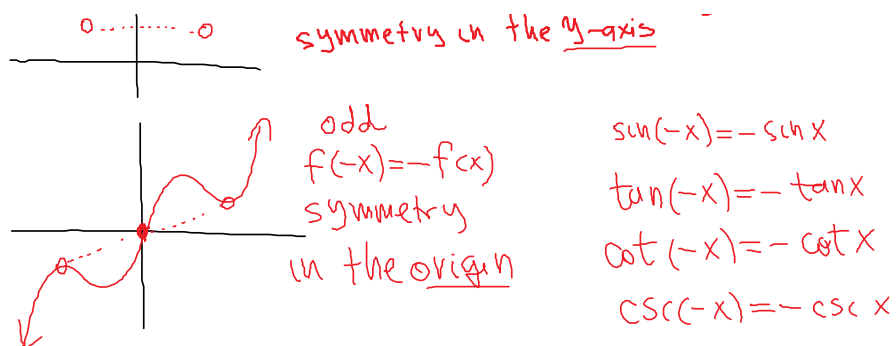 symmetry in the y-axis
odd
f(-x)=-f(x)
symmetry
in the origin
sin(-x)=-sinx
tan(-x)=-tanx
cot(-x)=-cotx
csc(-x)=-cscx